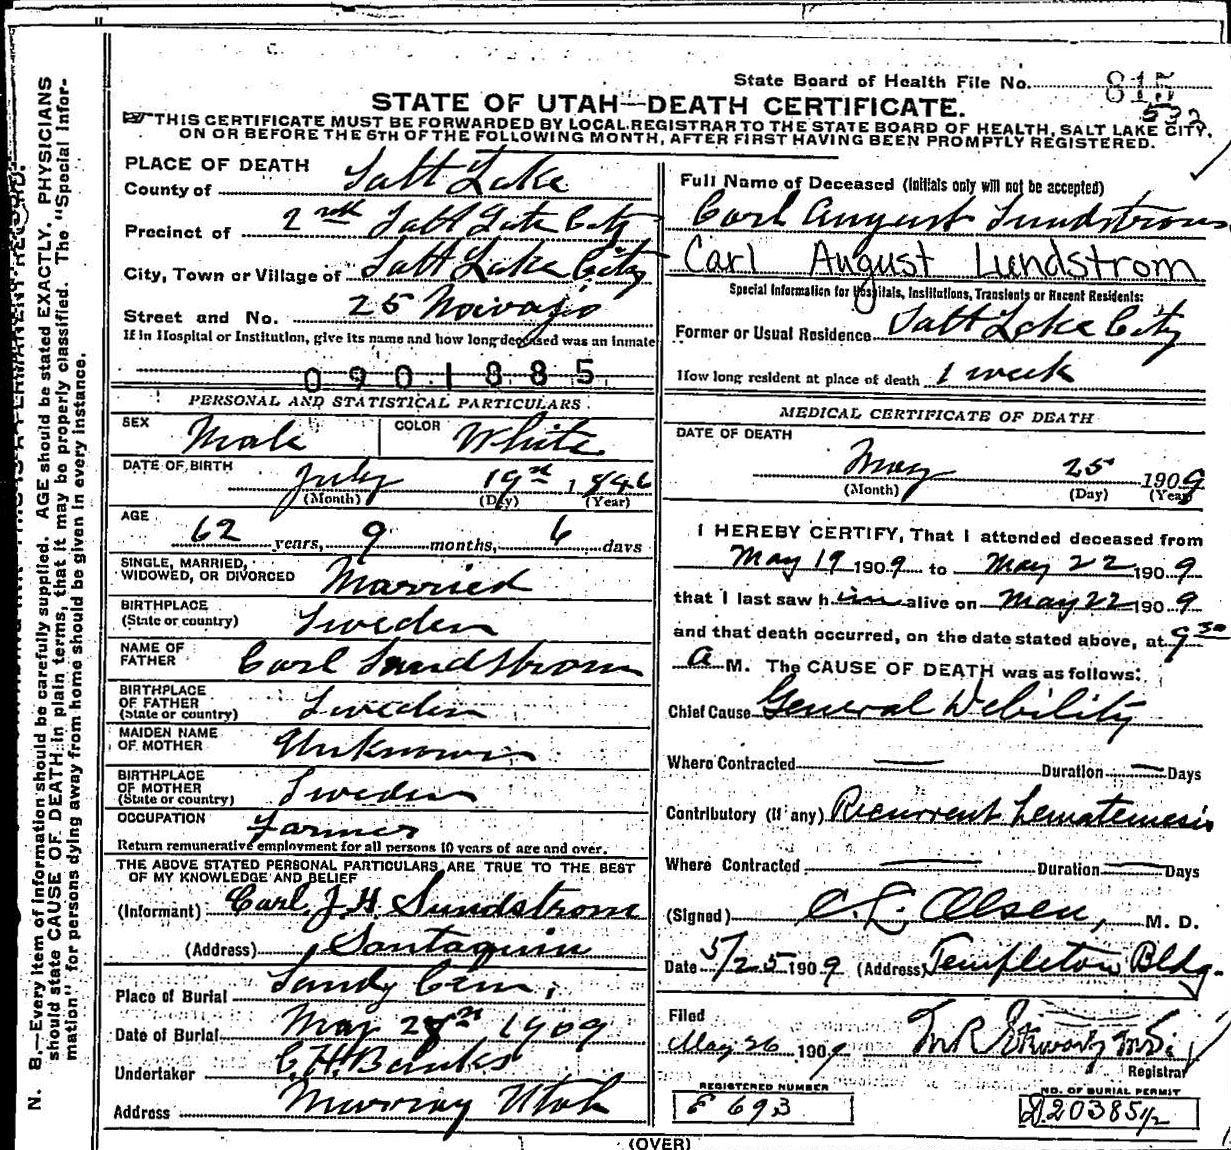 State Board of Health File No. 815
532
STATE OF UTAH—DEATH CERTIFICATE.
THIS CERTIFICATE MUST BE FORWARDED BY LOCAL REGISTRAR TO THE STATE BOARD OF HEALTH, SALT LAKE CITY,
ON OR BEFORE THE 6TH OF THE FOLLOWING MONTH, AFTER FIRST HAVING BEEN PROMPTLY REGISTERED.
PLACE OF DEATH
County of Salt Lake
Precinct of 2nd Salt Lake City
City, Town or Village of Salt Lake City
Street and No. 25 Navajo
If in Hospital or Institution, give its name and how long deceased was an inmate
0901885
PERSONAL AND STATISTICAL PARTICULARS
SEX Male COLOR White
DATE OF BIRTH July 19 1846
(Month) (Day) (Year)
AGE
62 years, 9 months, 6 days
SINGLE, MARRIED,
WIDOWED, OR DIVORCED Married
BIRTHPLACE
(State or country) Sweden
NAME OF
FATHER Carl Lundstrom
BIRTHPLACE
OF FATHER
(State or country) Sweden
MAIDEN NAME
OF MOTHER Unknown
BIRTHPLACE
OF MOTHER
(State or country) Sweden
OCCUPATION Farmer
Return remunerative employment for all persons 10 years of age and over.
THE ABOVE STATED PERSONAL PARTICULARS ARE TRUE TO THE BEST
OF MY KNOWLEDGE AND BELIEF
(Informant) Carl J. H. Lundstrom
(Address) Santaquin
Place of Burial Sandy Cem;
Date of Burial May 1909
Undertaker Banks
Address Murray Utah
Full Name of Deceased (Initials only will not be accepted)
Carl August Lundstrom
Carl August Lundstrom
Special Information for Hospitals, Institutions, Transients or Recent Residents:
Former or Usual Residence Salt Lake City
How long resident at place of death 1 week
MEDICAL CERTIFICATE OF DEATH
DATE OF DEATH
May 25 1909
(Month) (Day) (Year)
I HEREBY CERTIFY, That I attended deceased from
May 19 1909 to May 22 1909
that I last saw him alive on May 22 1909
and that death occurred, on the date stated above, at 9 30
a M. The CAUSE OF DEATH was as follows:
Chief Cause General Debility
Where Contracted — Duration — Days
Contributory (If any) Recurrent hematemesis
Where Contracted — Duration — Days
(Signed) C. L. Olsen, M. D.
Date 5/25 1909 (Address) Templeton Bldg.
Filed
May 26 1909
Registrar
REGISTERED NUMBER
693
NO. OF BURIAL PERMIT
20385 1/2
(OVER)
N. B.—Every item of information should be carefully supplied. AGE should be stated EXACTLY. PHYSICIANS
should state CAUSE OF DEATH in plain terms, that it may be properly classified. The "Special Infor-
mation" for persons dying away from home should be given in every instance.